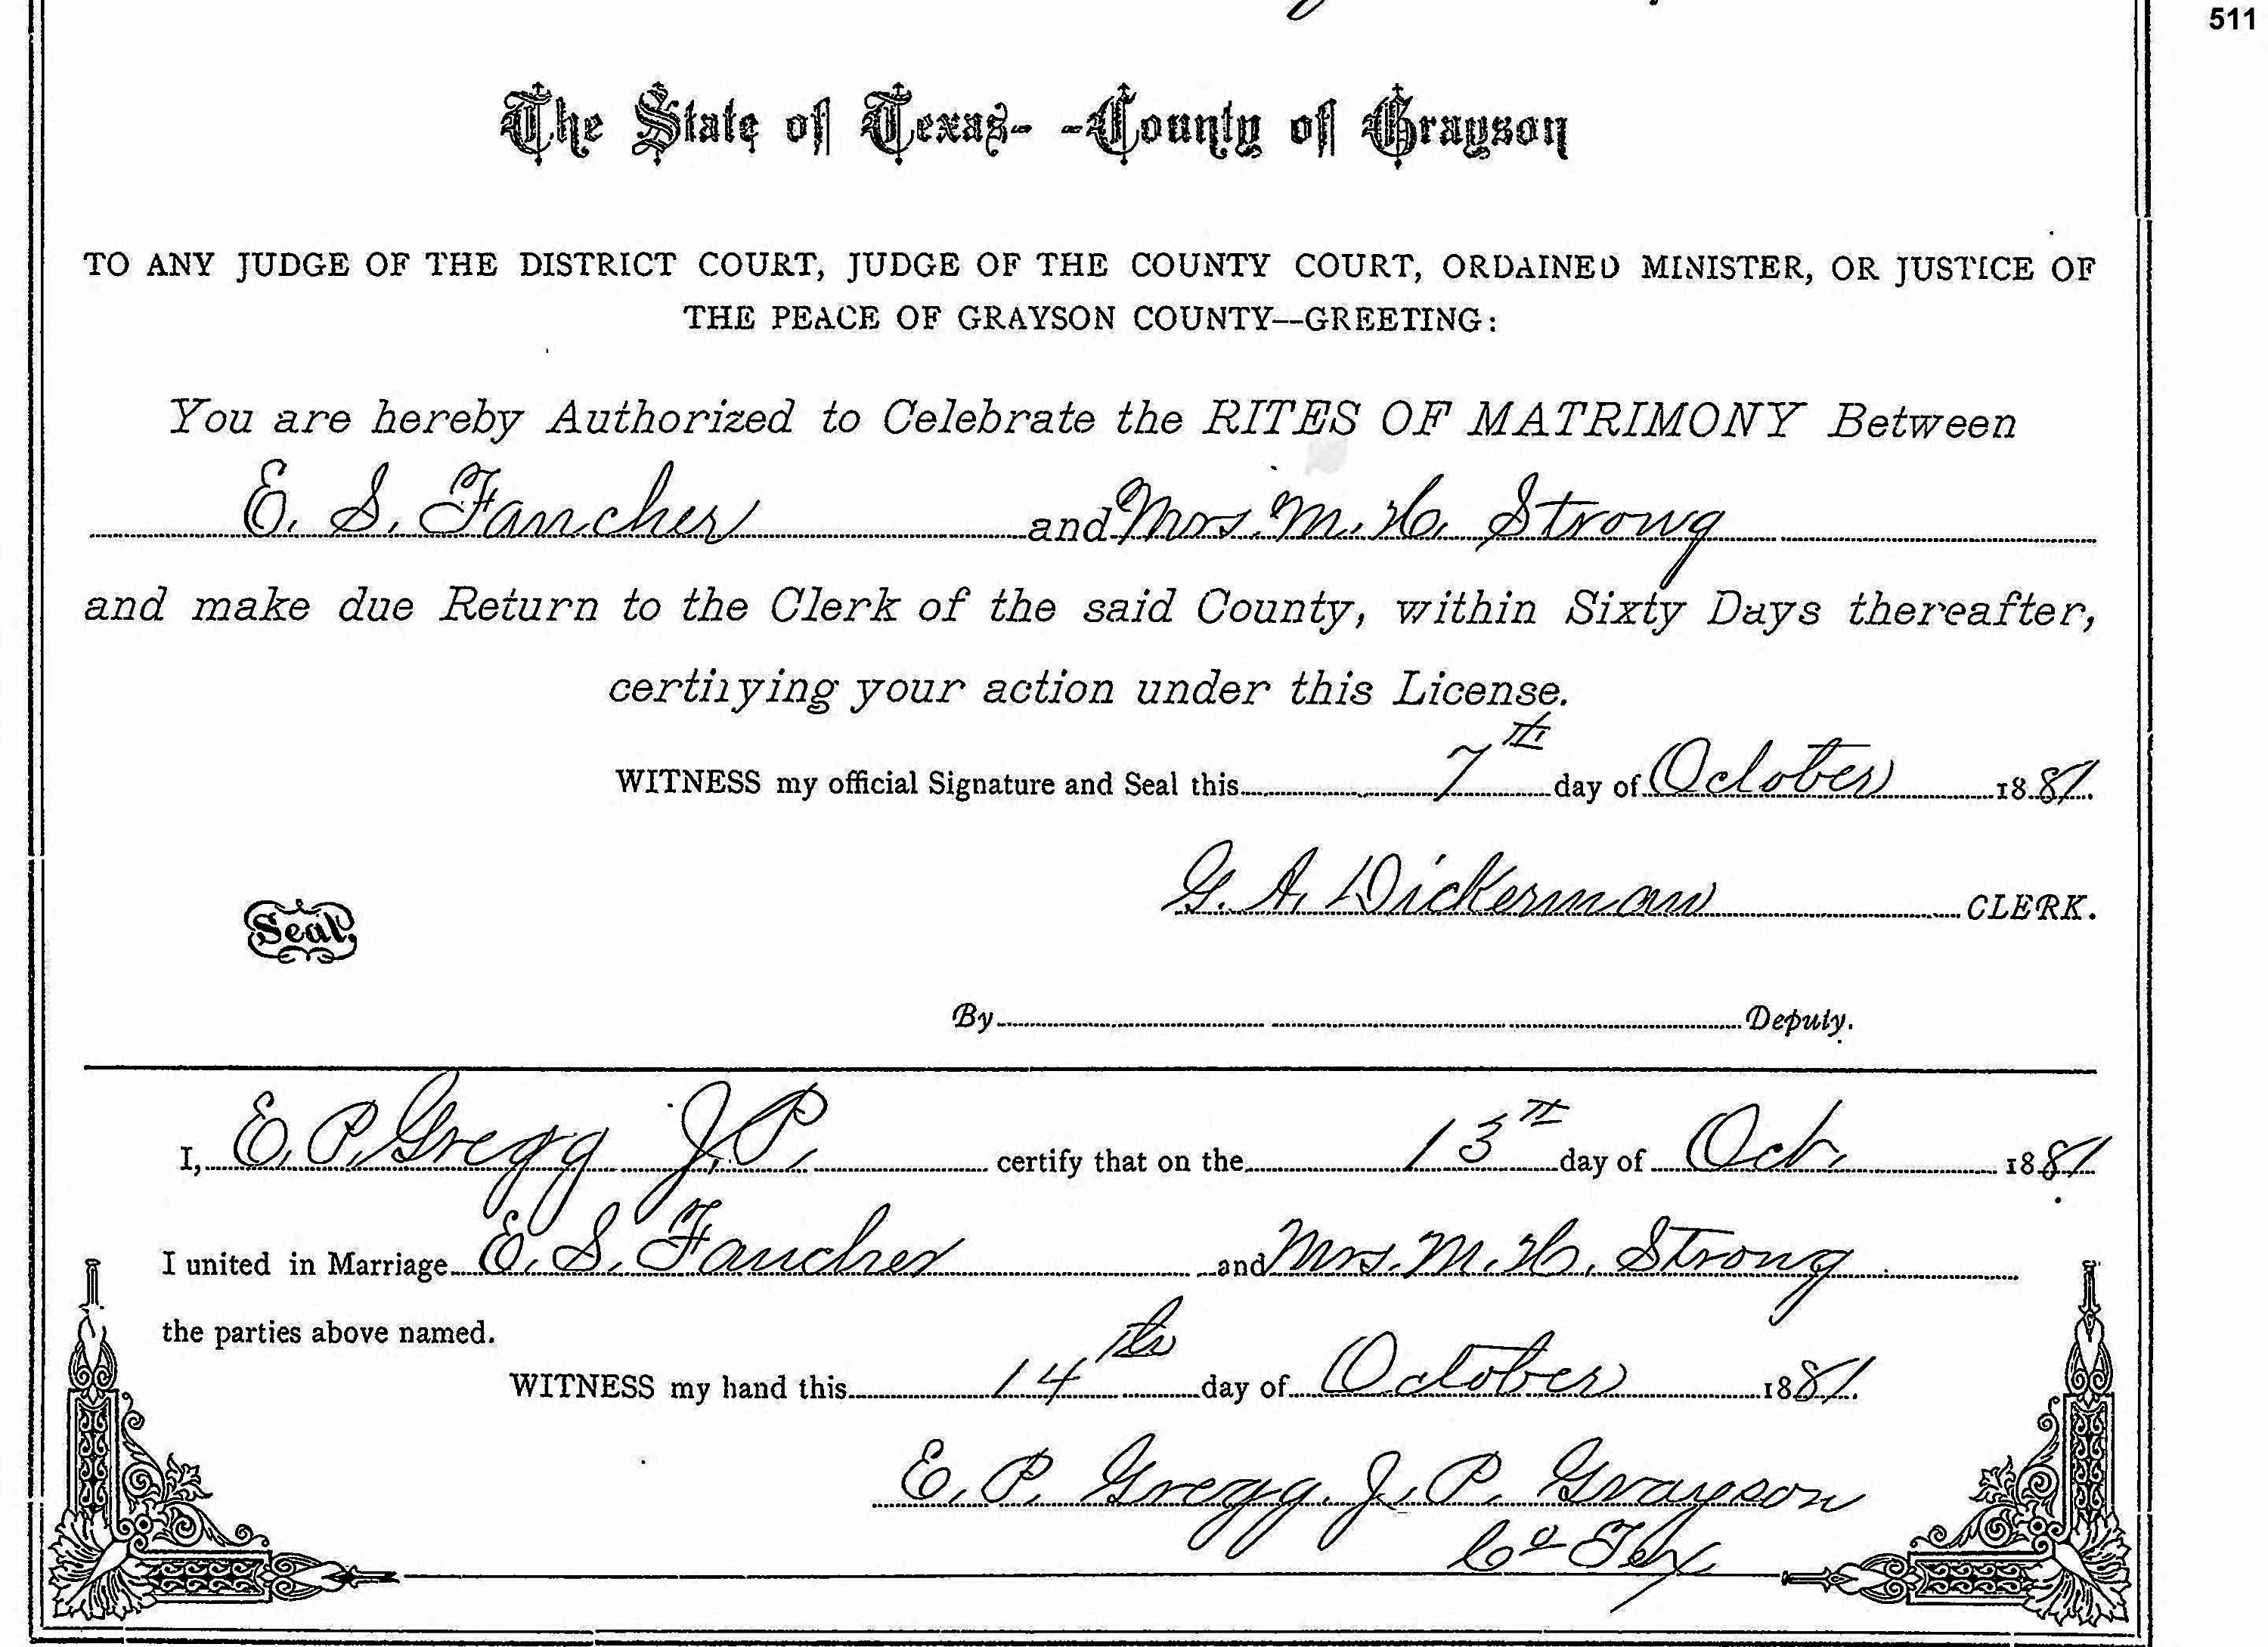 511
The State of Texas- -County of Grayson
TO ANY JUDGE OF THE DISTRICT COURT, JUDGE OF THE COUNTY COURT, ORDAINED MINISTER, OR JUSTICE OF
THE PEACE OF GRAYSON COUNTY—GREETING:
You are hereby Authorized to Celebrate the RITES OF MATRIMONY Between
E. S. Fancher and Mrs. M. H. Strong
and make due Return to the Clerk of the said County, within Sixty Days thereafter,
certifying your action under this License.
WITNESS my official Signature and Seal this 7th day of October 1881.
G. A. Dickerman CLERK.
Seal
By Deputy.
I, E. P. Gregg J.P. certify that on the 13th day of Oct. 1881
I united in Marriage E. S. Fancher and Mrs. M. H. Strong
the parties above named.
WITNESS my hand this 14th day of October 1881.
E. P. Gregg. J. P. Grayson
Co Tex